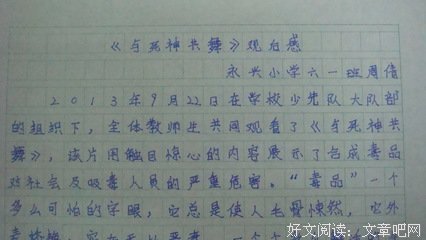 《与死神共舞》观后感
永兴小学六一班周倩
2013年9月22日在学校少先队大队部
的组织下，全体教师生共同观看了《与死神共
舞》，该片用触目惊心的内容展示了合成毒品
对社会及吸毒人员的严重危害。“毒品”一个
多么可怕的字眼，它总是使人毛骨悚然，它外
好文阅读：文章吧网